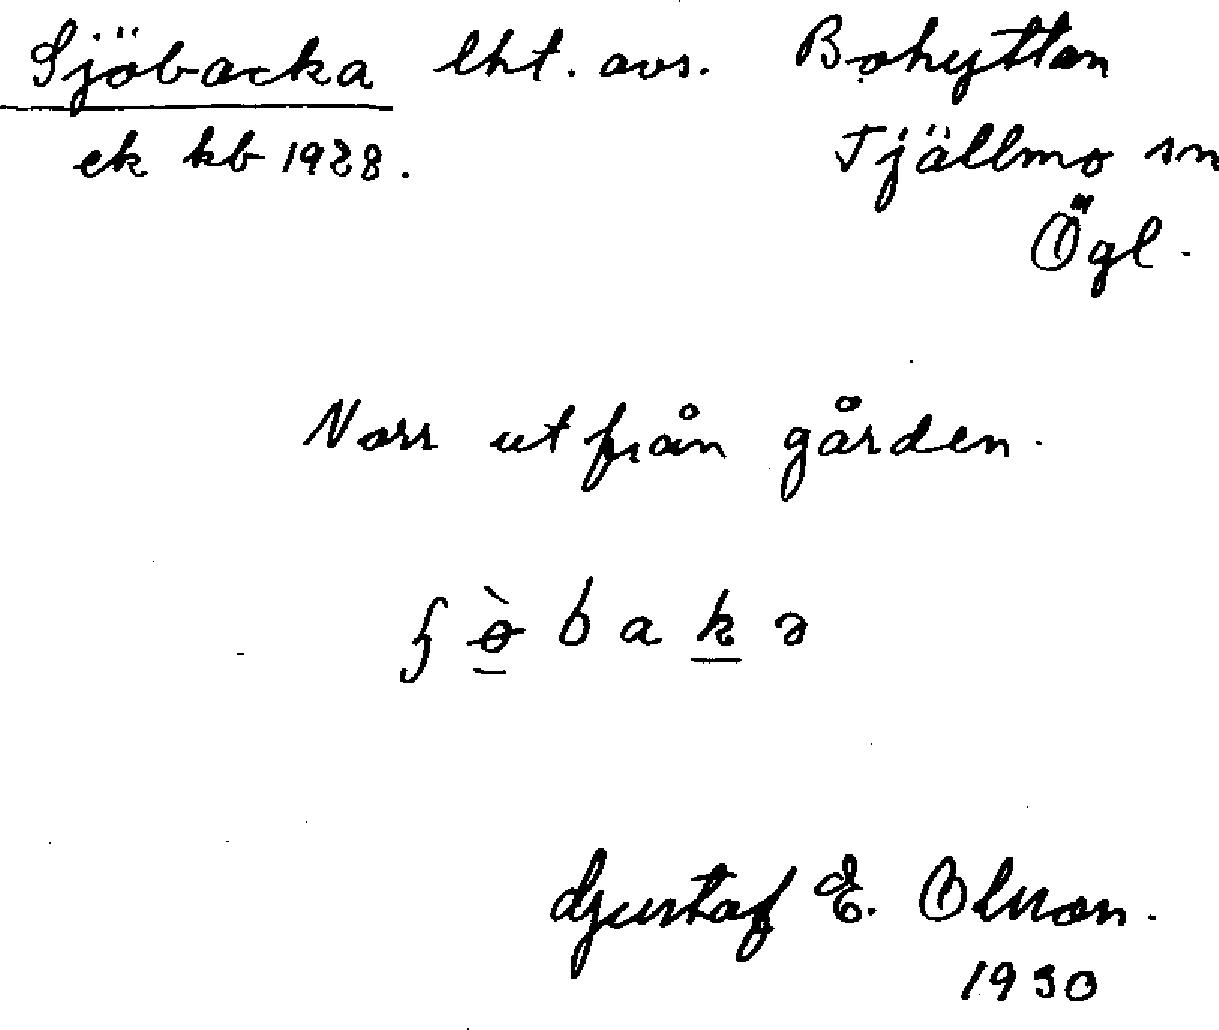 Sjöbacka lht. avs. Bohyttan
ek kb 1928. Tjällmo sn
Ögl.
Norr ut från gården.
ʂ ø̀ b a k ə
Gustaf E. Olsson.
1930